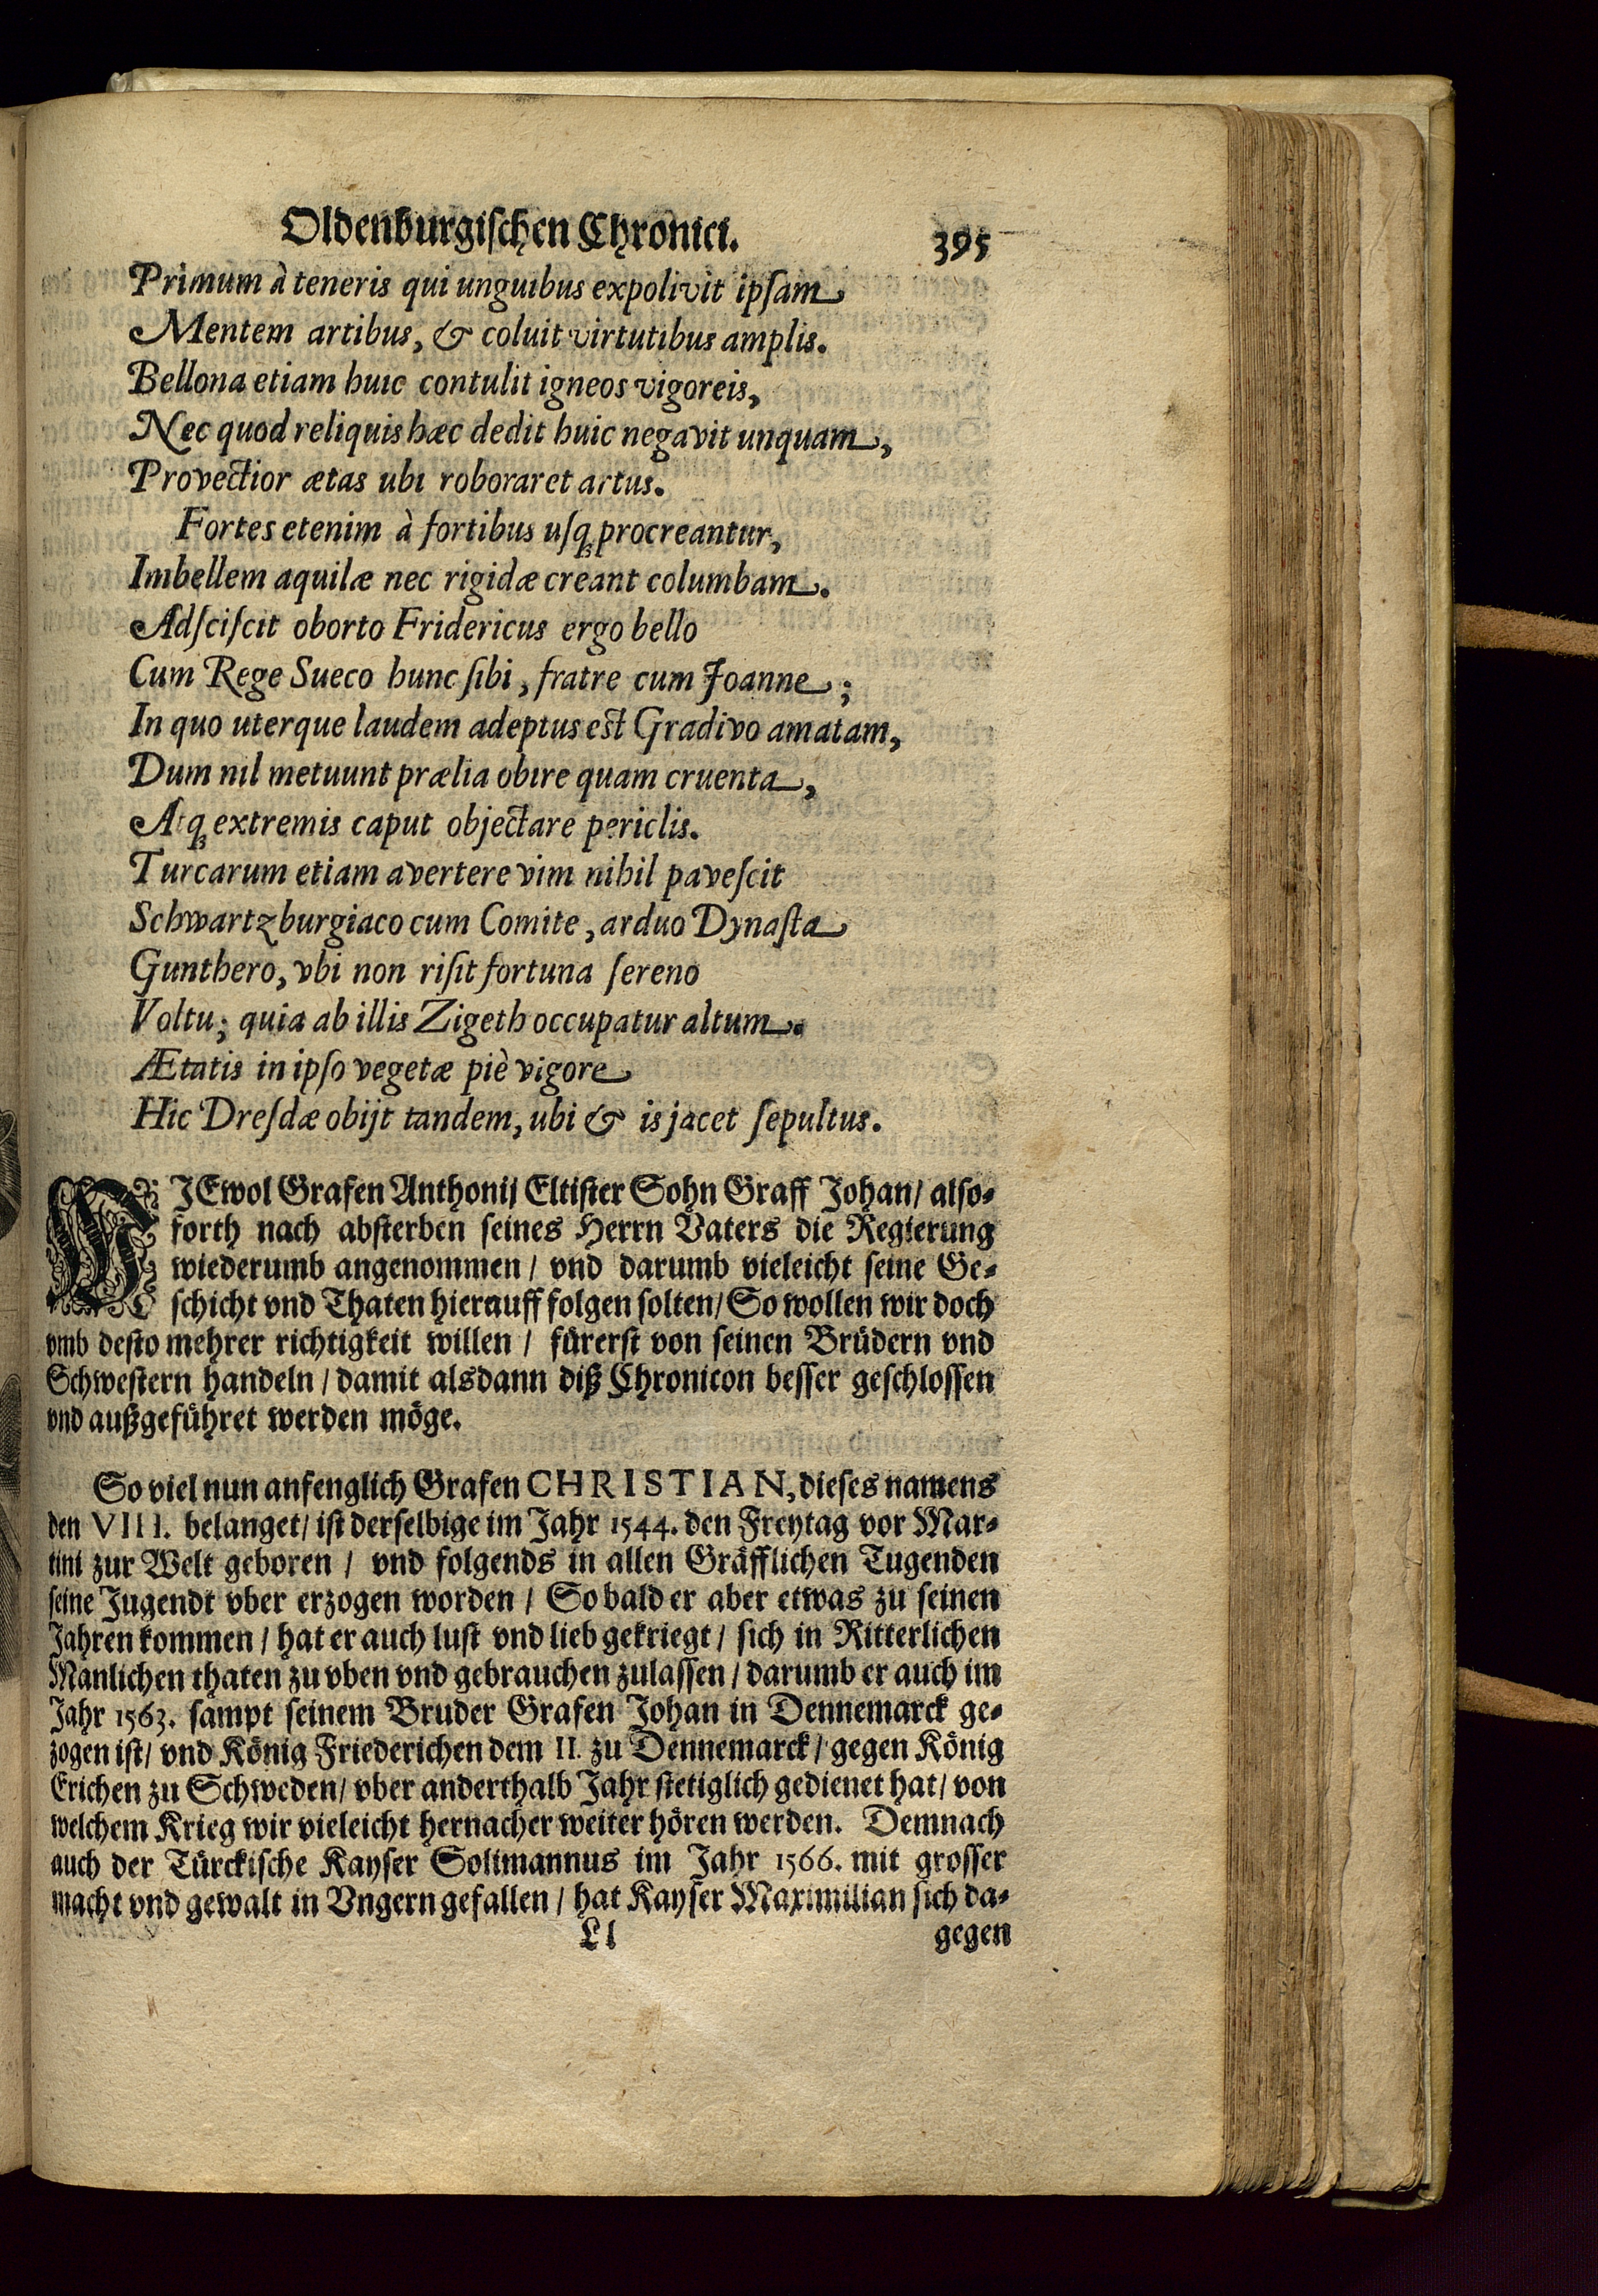 Oldenburgischen Chronici. 395
Primum à teneris qui unguibus expolivit ipſam
Mentem artibus, & coluit virtutibus amplis.
Bellona etiam huic contulit igneos vigoreis,
Nec quod reliquis hæc dedit huic negavit unquam,
Provectior ætas ubi roboraret artus.
Fortes etenim à fortibus uſq; procreantur,
Imbellem aquilæ nec rigidæ creant columbam.
Adſciſcit oborto Fridericus ergo bello
Cum Rege Sueco hunc ſibi, fratre cum Joanne;
In quo uterque laudem adeptus eſt Gradivo amatam,
Dum nil metuunt prælia obire quam cruenta,
Atq; extremis caput objectare periclis.
Turcarum etiam avertere vim nihil paveſcit
Schwartzburgiaco cum Comite, arduo Dynaſta
Gunthero, vbi non riſit fortuna ſereno
Voltu; quia ab illis Zigeth occupatur altum.
Ætatis in ipſo vegetæ piè vigore
Hic Dreſdæ obijt tandem, ubi & is jacet ſepultus.
WJEwol Grafen Anthonij Eltiſter Sohn Graff Johan / alſo-
forth nach abſterben ſeines Herrn Vaters die Regierung
wiederumb angenommen / vnd darumb vieleicht ſeine Ge-
ſchicht vnd Thaten hierauff folgen ſolten / So wollen wir doch
vmb deſto mehrer richtigkeit willen / fürerſt von ſeinen Brüdern vnd
Schweſtern handeln / damit alsdann diß Chronicon beſſer geſchloſſen
vnd außgeführet werden möge.
So viel nun anfenglich Grafen CHRISTIAN, dieſes namens
den VIII. belanget / iſt derſelbige im Jahr 1544. den Freytag vor Mar-
tini zur Welt geboren / vnd folgends in allen Gräfflichen Tugenden
ſeine Jugendt vber erzogen worden / So bald er aber etwas zu ſeinen
Jahren kommen / hat er auch luſt vnd lieb gekriegt / ſich in Ritterlichen
Manlichen thaten zu vben vnd gebrauchen zulaſſen / darumb er auch im
Jahr 1563. ſampt ſeinem Bruder Grafen Johan in Dennemarck ge-
zogen iſt / vnd König Friederichen dem II. zu Dennemarck / gegen König
Erichen zu Schweden / vber anderthalb Jahr ſtetiglich gedienet hat / von
welchem Krieg wir vieleicht hernacher weiter hören werden. Demnach
auch der Türckiſche Kayſer Solimannus im Jahr 1566. mit groſſer
macht vnd gewalt in Vngern gefallen / hat Kayſer Maximilian ſich da-
Ll gegen